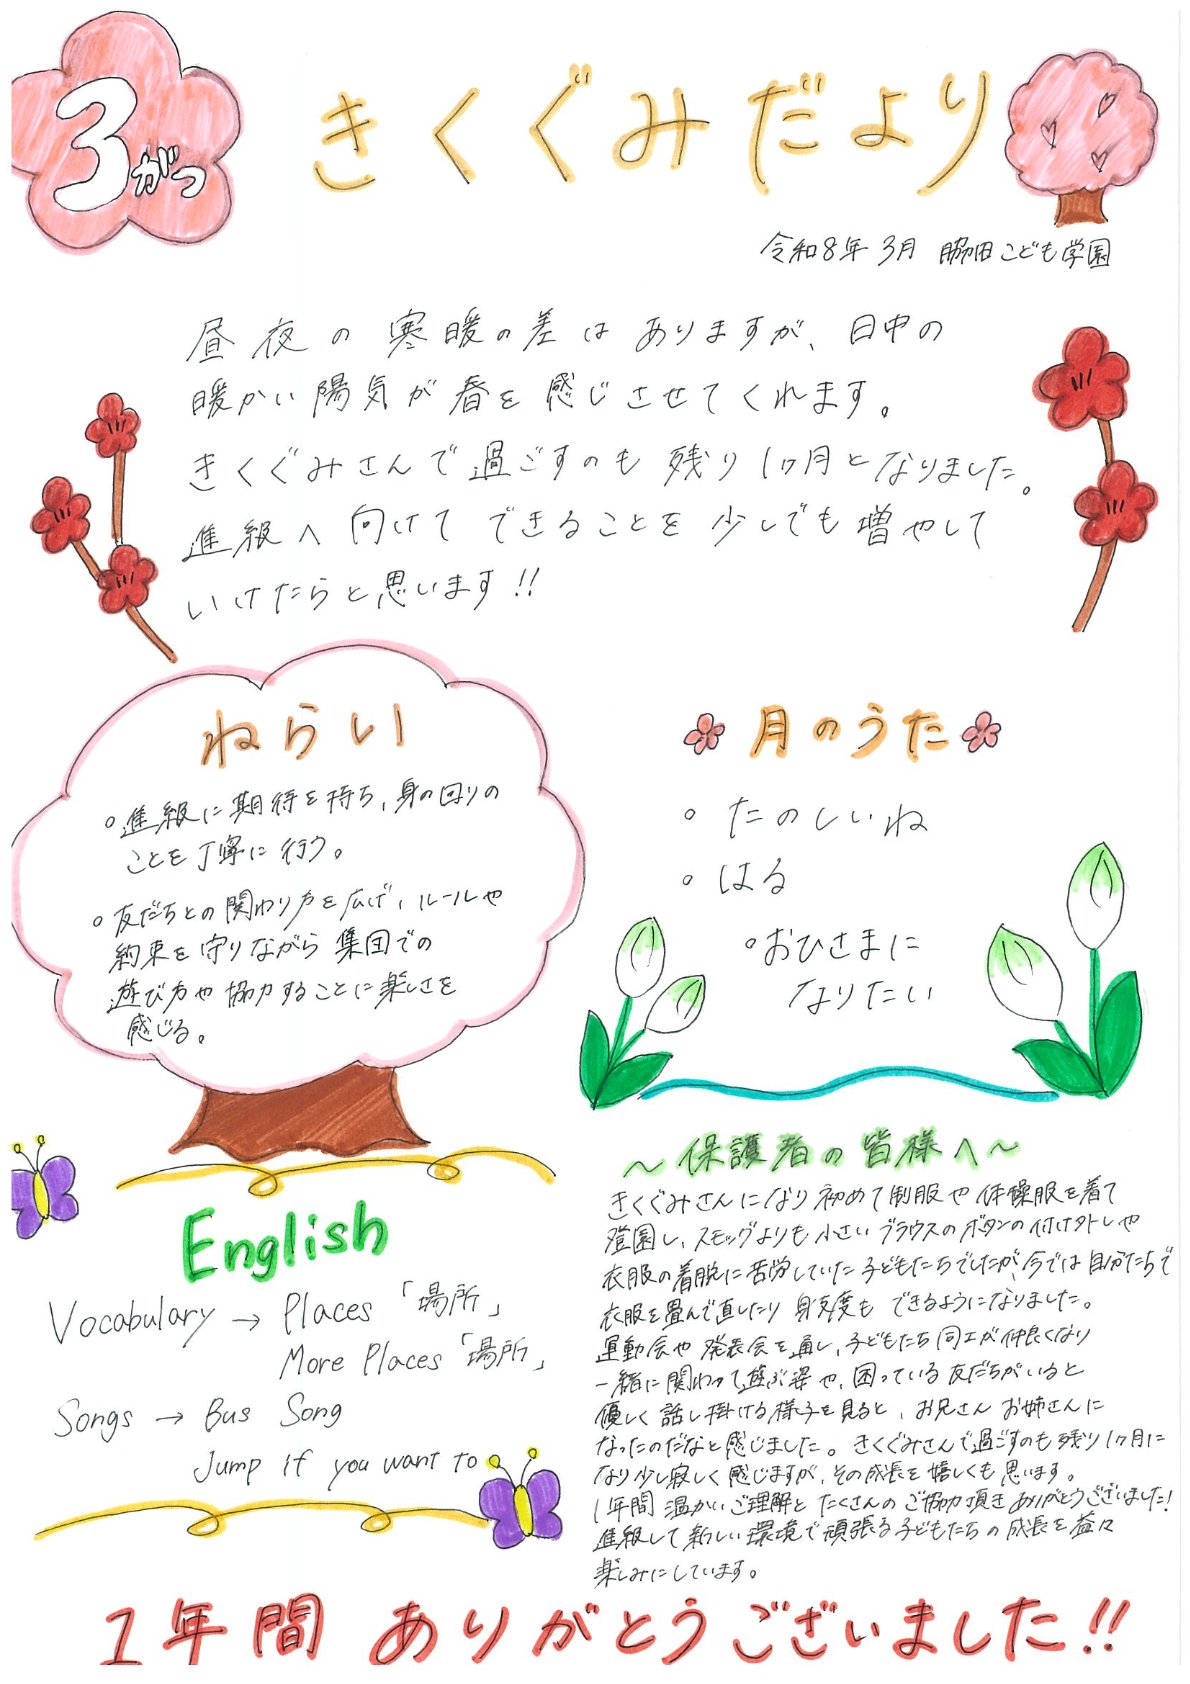 3がつ
きくぐみだより
令和8年 3月 脇田こども学園
昼夜の寒暖の差はありますが、日中の
暖かい陽気が春を感じさせてくれます。
きくぐみさんで過ごすのも残り1ヶ月となりました。
進級へ向けてできることを少しでも増やして
いけたらと思います!!
ねらい
○進級に期待を持ち、身の回りの
ことを丁寧に行う。
○友だちとの関わり方を広げ、ルールや
約束を守りながら集団での
遊び方や協力することに楽しさを
感じる。
月のうた
○たのしいね
○はる
○おひさまに
なりたい
English
Vocabulary → Places「場所」
More Places「場所」
Songs → Bus Song
Jump if you want to
～保護者の皆様へ～
きくぐみさんになり初めて制服や体操服を着て
登園し、スモッグよりも小さいブラウスのボタンの付け外しや
衣服の着脱に苦労していた子どもたちでしたが、今では自分たちで
衣服を畳んで直したり身支度もできるようになりました。
運動会や発表会を通し、子どもたち同士が仲良くなり
一緒に関わって遊ぶ姿や、困っている友だちがいると
優しく話し掛ける様子を見ると、お兄さんお姉さんに
なったのだなと感じました。きくぐみさんで過ごすのも残り1ヶ月に
なり少し寂しく感じますが、その成長を嬉しくも思います。
1年間温かいご理解とたくさんのご協力頂きありがとうございました!
進級して新しい環境で頑張る子どもたちの成長を益々
楽しみにしています。
1年間ありがとうございました!!